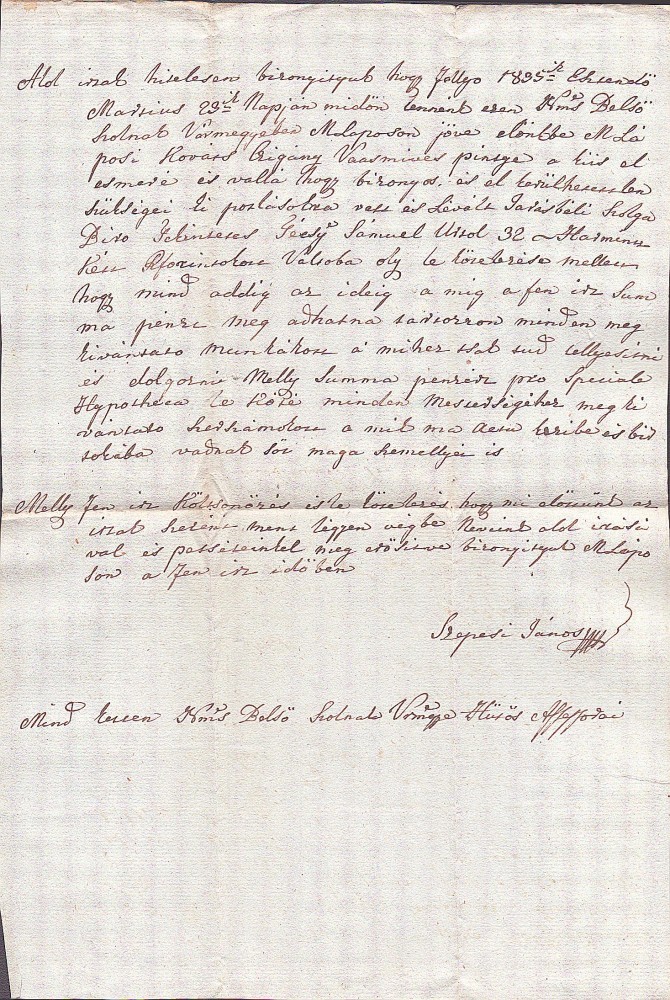 Alol irtak hitelesen bizonyittyuk hogy Folyo 1835ik Esztendö
Martius 23ik Napján midön lennénk ezen Nms Belsö
Szolnok Vármegyében MLaposon jöve elönkbe MLá
posi Kováts Czigány Vaasmives pintye a kiis el
esmeré és vallá hogy bizonyos, és el kerülhetetlen
szükségei ki potlásokra vett és Lévált Jarásbéli Szolga
Biro Tekintetes Gécsy Sámuel Urtol 32 Harmintz
Kétt Rforintokott Váltoba oly le kötelezése mellett
hogy mind addig az ideig a mig a fen irt Sum
ma pénzt meg adhatna tartozzon minden meg
kivántato munkákott a mihez tsak tud tellyesitni
és dolgozni Melly Summa penzért pro Speciale
Hypotheca le köté minden Mesterségéhez meg ki
vántato szerszámokott a mik ma kezibe és bir
tokába vadnak söt maga személlyei is
Melly fen irt Költsönözés és le kötelezés hogy mi elöttünk az
irtak szerént ment légyen végbe Neveink alol irásá
val és petséteinkel meg erösitve bizonyittyuk MLápo
son a fen irt idöben
Szepesi János
Mind ketten Nms Belsö Szolnok Vrmgye Hütös Assessorai